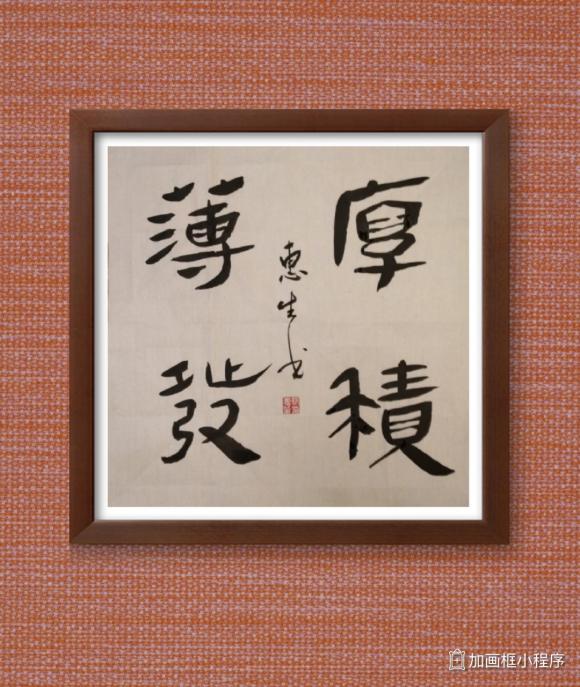 厚積
薄發
惠生书
加画框小程序